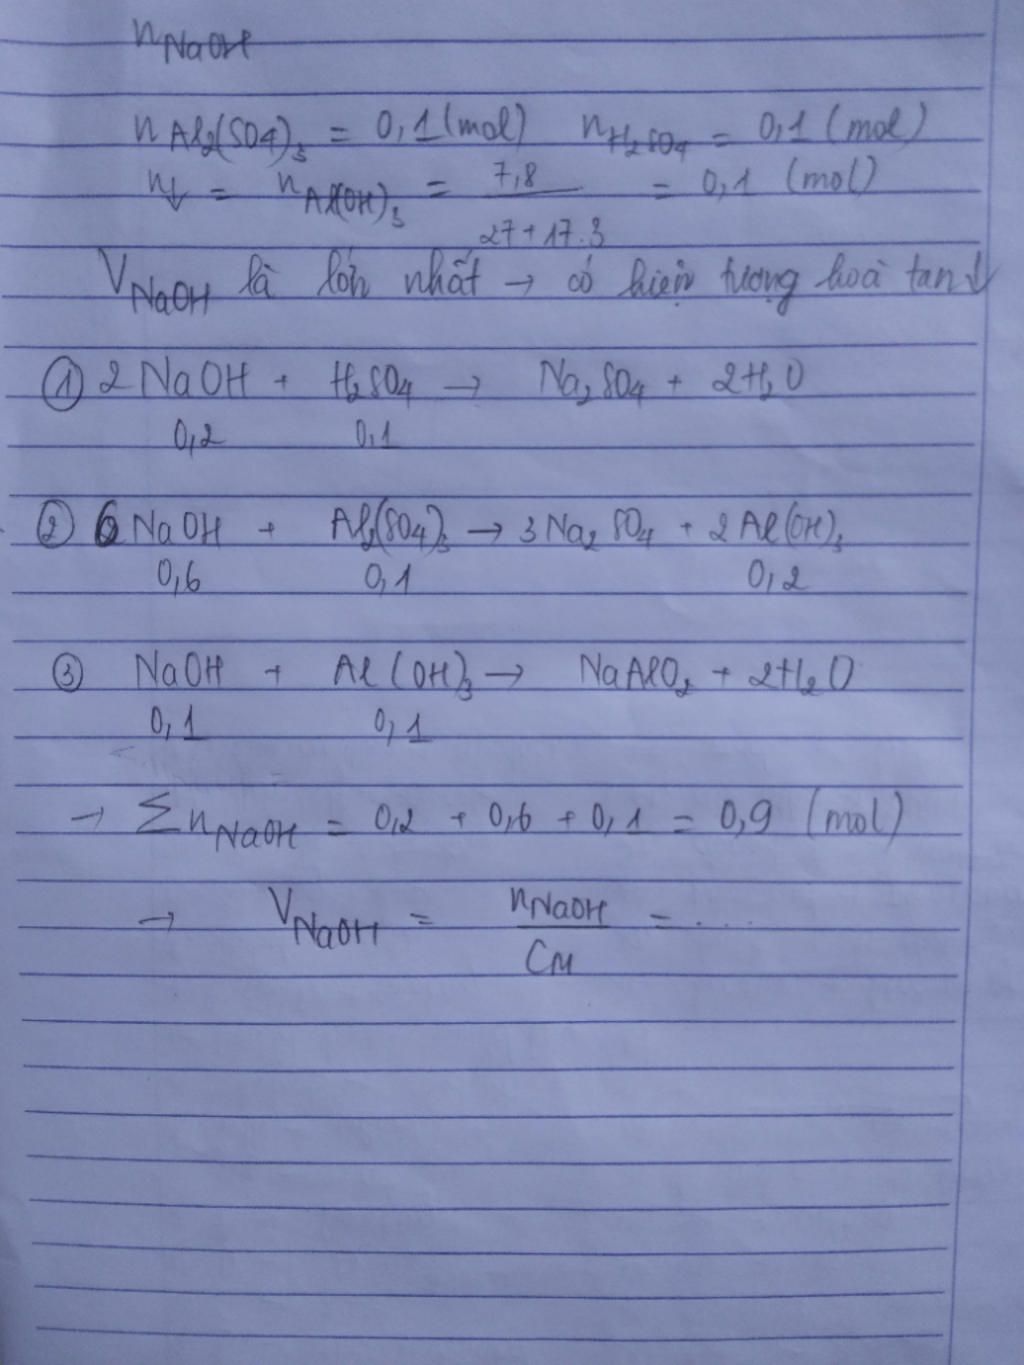 nNaOH
nAl2(SO4)3 = 0,1 (mol) nH2SO4 = 0,1 (mol)
n↓ = nAl(OH)3 = 7,8 / 27 + 17.3 = 0,1 (mol)
VNaOH là lớn nhất → có hiện tượng hoà tan ↓
① 2 NaOH + H2SO4 → Na2SO4 + 2H2O
0,2 0,1
② 6 NaOH + Al2(SO4)3 → 3 Na2SO4 + 2 Al(OH)3
0,6 0,1 0,2
③ NaOH + Al(OH)3 → NaAlO2 + 2H2O
0,1 0,1
→ ΣnNaOH = 0,2 + 0,6 + 0,1 = 0,9 (mol)
→ VNaOH = nNaOH / CM = .....